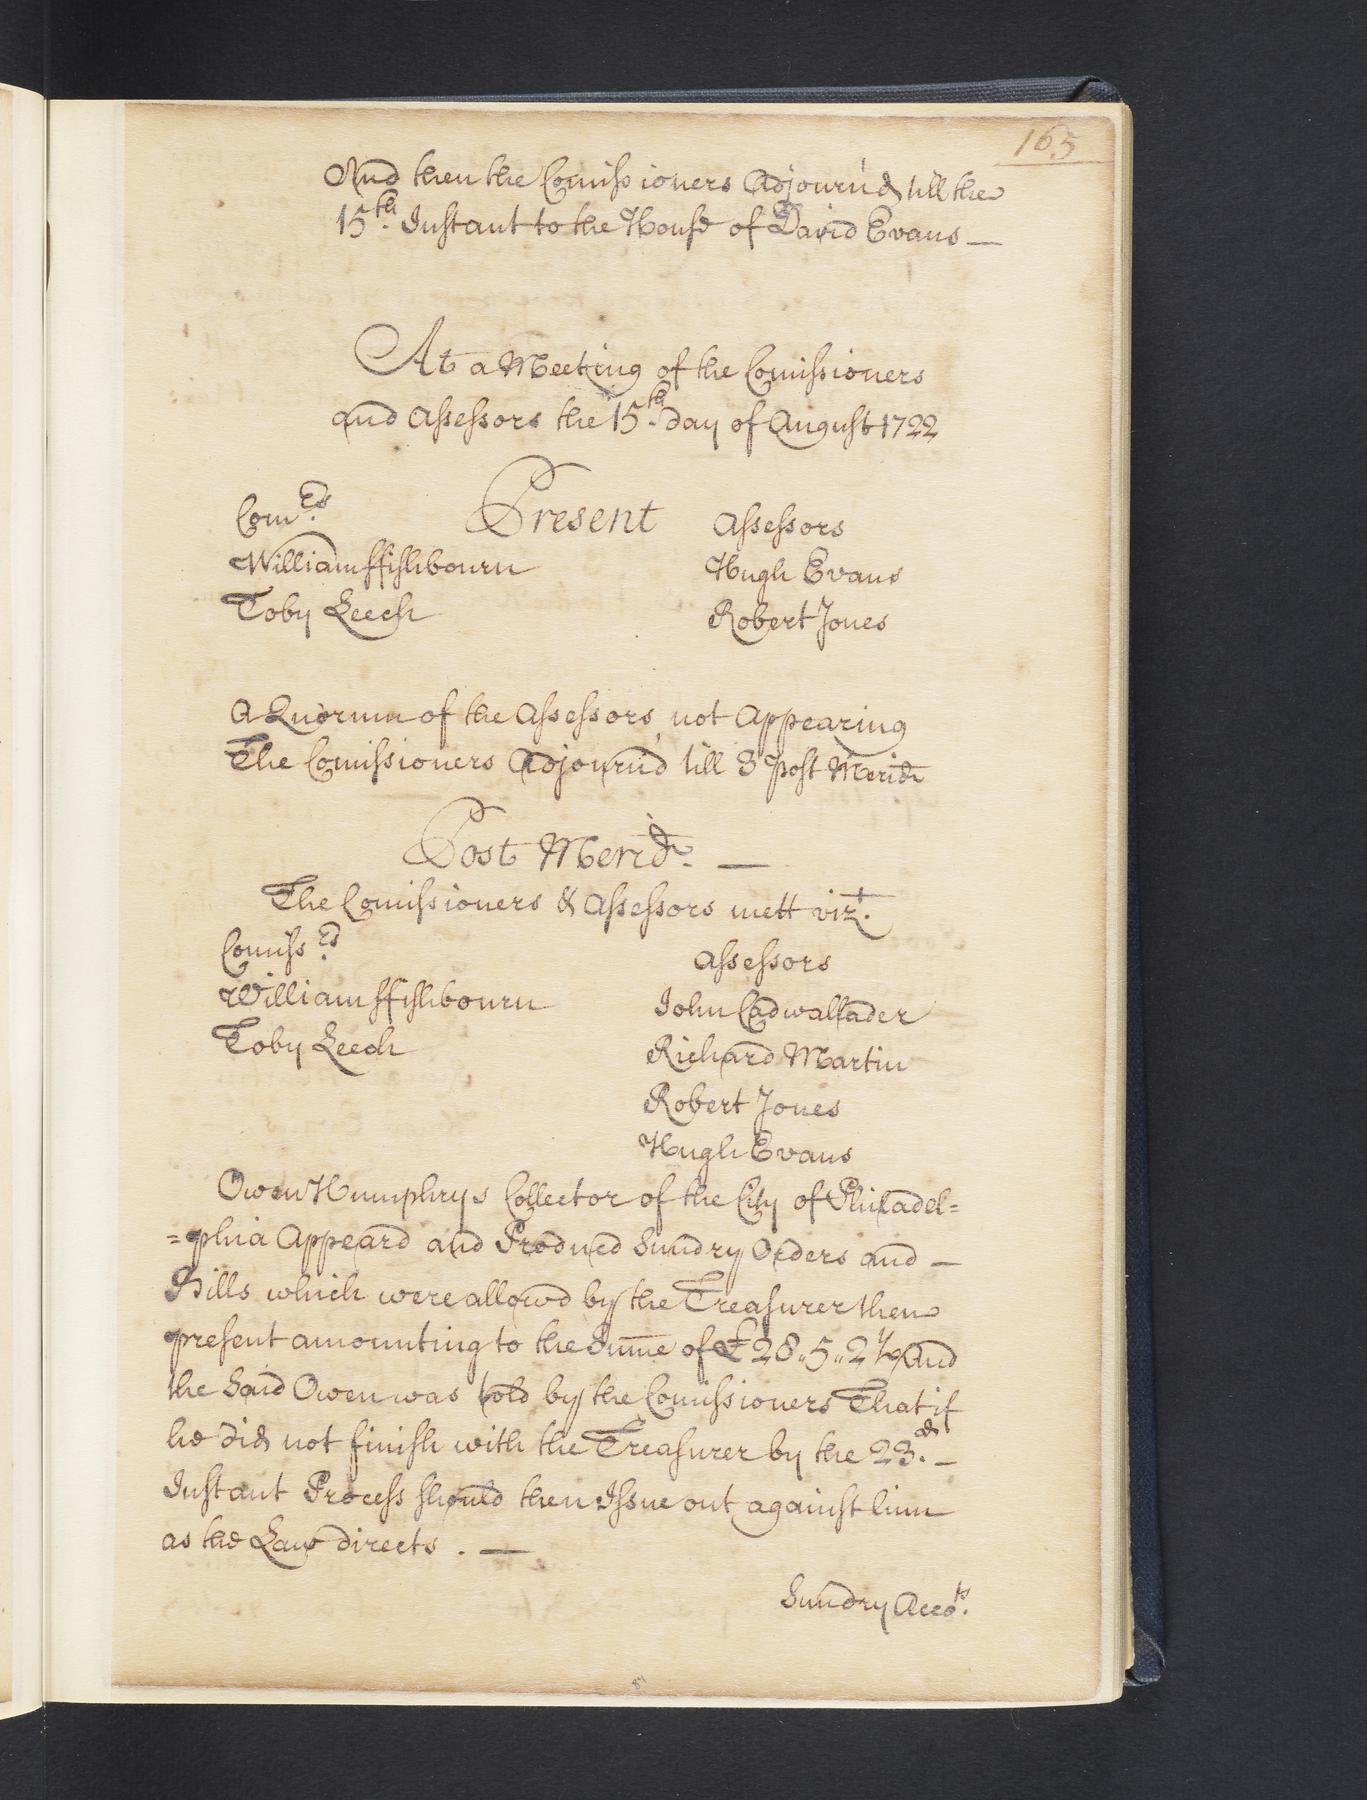 165
And then the Comissioners Adjourn'd till the
15th. Instant to the House of David Evans —
At a Meeting of the Comissioners
and Assessors the 15th. day of August 1722
Comrs. Present Assessors
William ffishbourn Hugh Evans
Toby Leech Robert Jones
A Quorum of the Assessors not Appearing
The Comissioners Adjourn'd till 3 post Merid
Post Merid. —
The Comissioners & Assessors mett vizt.
Comissrs. Assessors
William ffishbourn John Cadwallader
Toby Leech Richard Martin
Robert Jones
Hugh Evans
Owen Humphrys Collector of the City of Philadel=
=phia Appeard and Produced Sundry Orders and —
Bills which were allowd by the Treasurer then
present amounting to the Sume of £28,,5,,2½ And
the Said Owen was told by the Comissioners That if
he did not finish with the Treasurer by the 23d. —
Instant Process should then Issue out against him
as the Law directs . —
Sundry Accots.